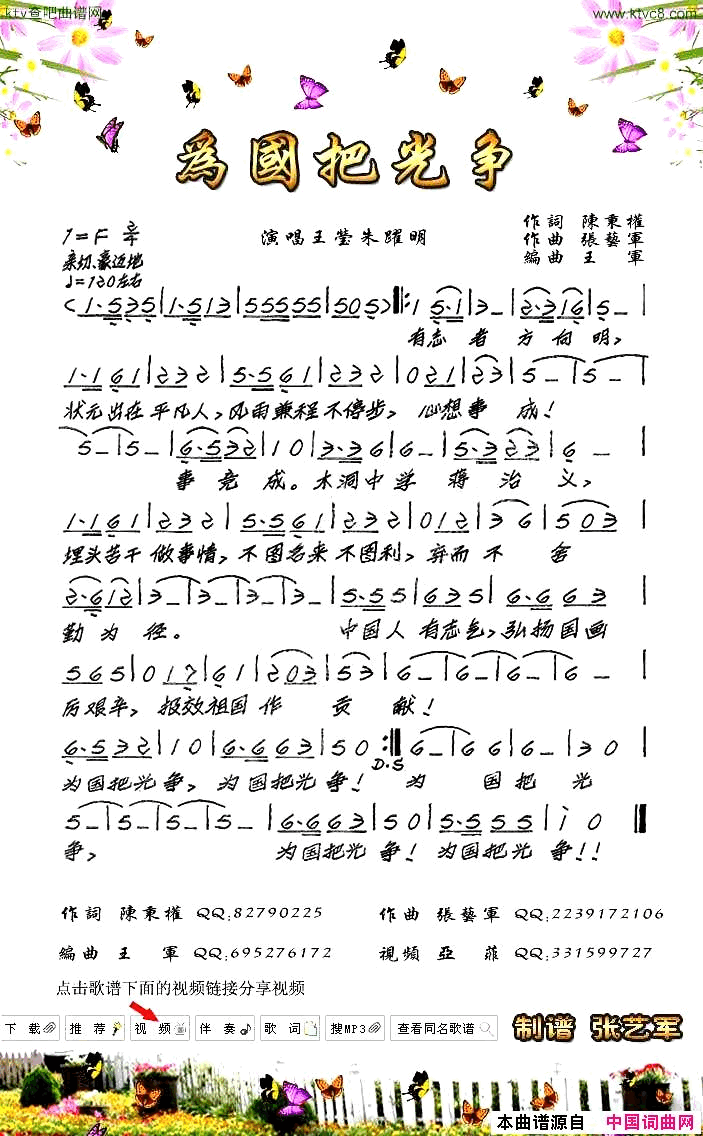 ktv查吧曲谱网 www.ktvc8.com
為國把光争
作詞 陳秉權
1=F 2/4 演唱王莹朱躍明 作曲 張藝軍
亲切、豪迈地 編曲 王 軍
♩=120左右
有志 者 方 向 明,
状元出在平凡人,风雨兼程不停步, 心想事 成!
事 竟 成。木洞中学 蒋 治 义,
埋头苦干做事情,不图名来不图利,弃而 不 舍
勤 为 径。 中国人有志气,弘扬国画
历艰辛,报效祖国作 贡 献!
D.S
为国把光争,为国把光争! 为 国 把 光
争, 为国把光争!为国把光争!!
作詞 陳秉權 QQ:82790225 作曲 張藝軍 QQ:2239172106
編曲 王 軍 QQ:695276172 視頻 亞菲 QQ:331599727
点击歌谱下面的视频链接分享视频
下载 推荐 视频 伴奏 歌词 搜MP3 查看同名歌谱 制谱 张艺军
本曲谱源自 中国词曲网